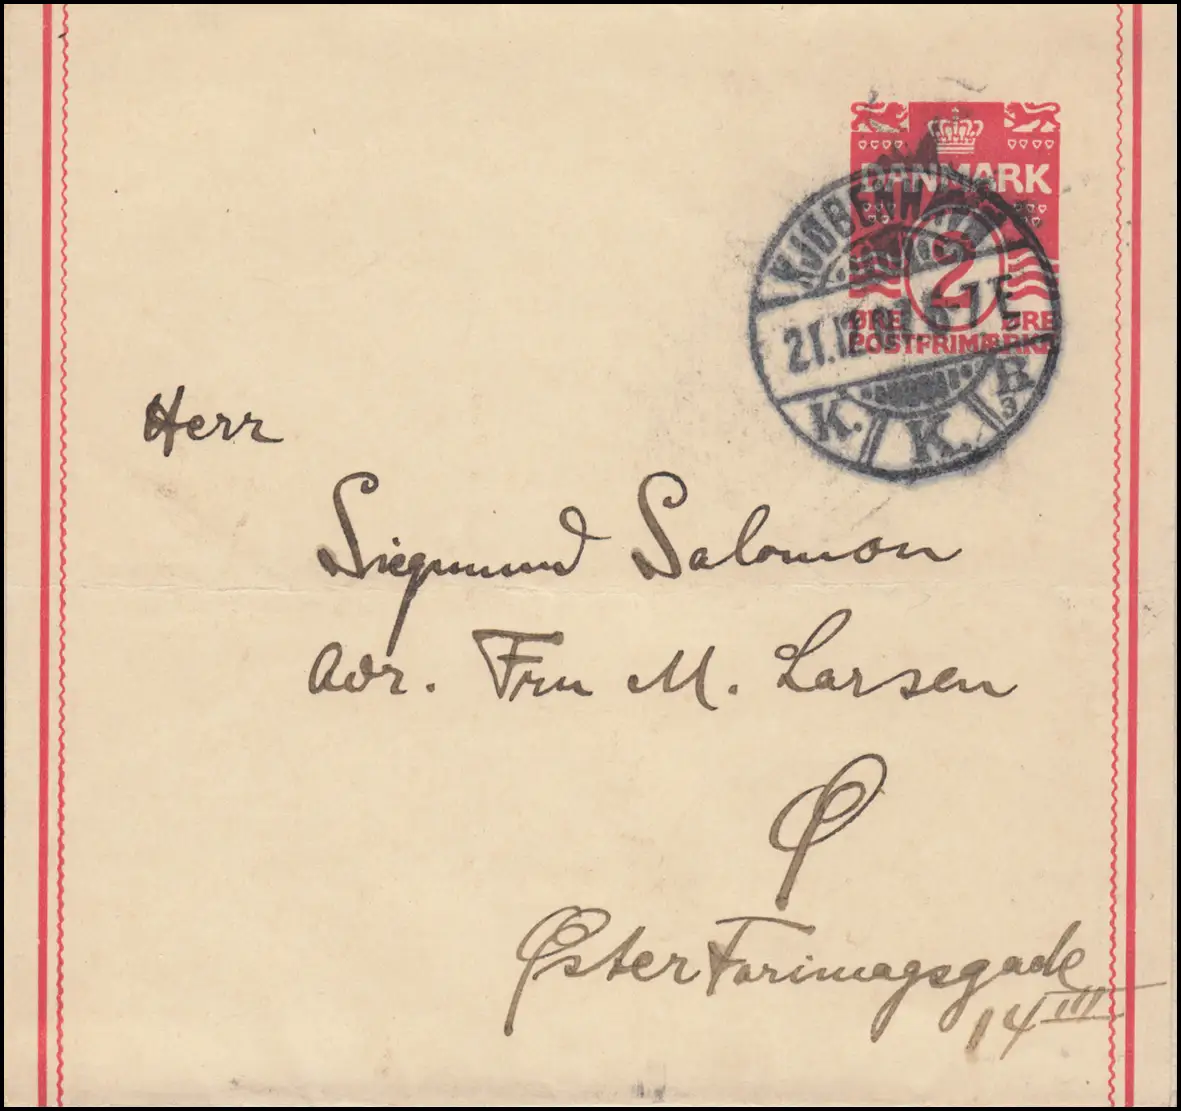 DANMARK
2
ØRE ØRE
POSTFRIMÆRKE
KJØBENHAVN
21.12. 6-7 E
K. K. B
3
Herr
Siegmund Salomon
Adr. Fru M. Larsen
Ø
Øster Farimagsgade
14 III